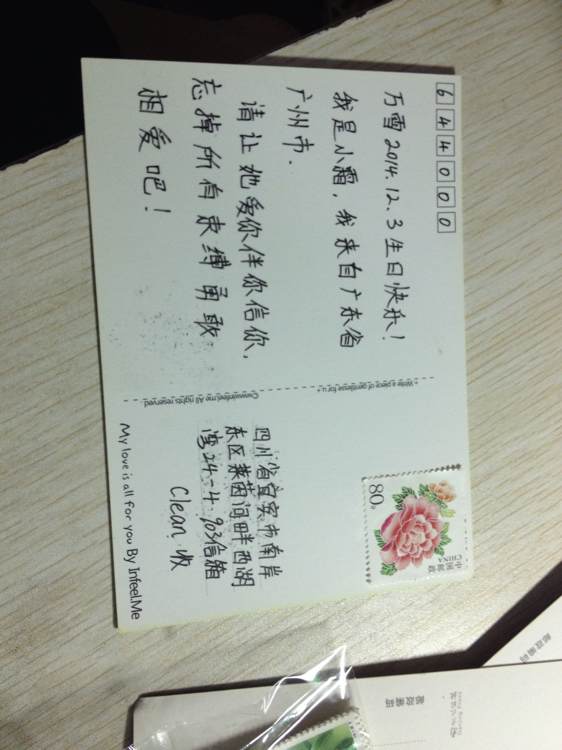 644000
万酉 2014.12.3 生日快乐！
我是小霜，我来自广东省
广州市．
请让她爱你伴你信你，
忘掉所有束缚勇敢
相爱吧！
Write a piece of gentleness for u
©www.infeel.me All rights reserved
80分
中国邮政
CHINA
四川省宜宾市南岸
东区莱茵河畔西湖
湾24-4-903信箱
Clean 收
My love is all for you By Infeel.Me
邮政编码
邮政编码